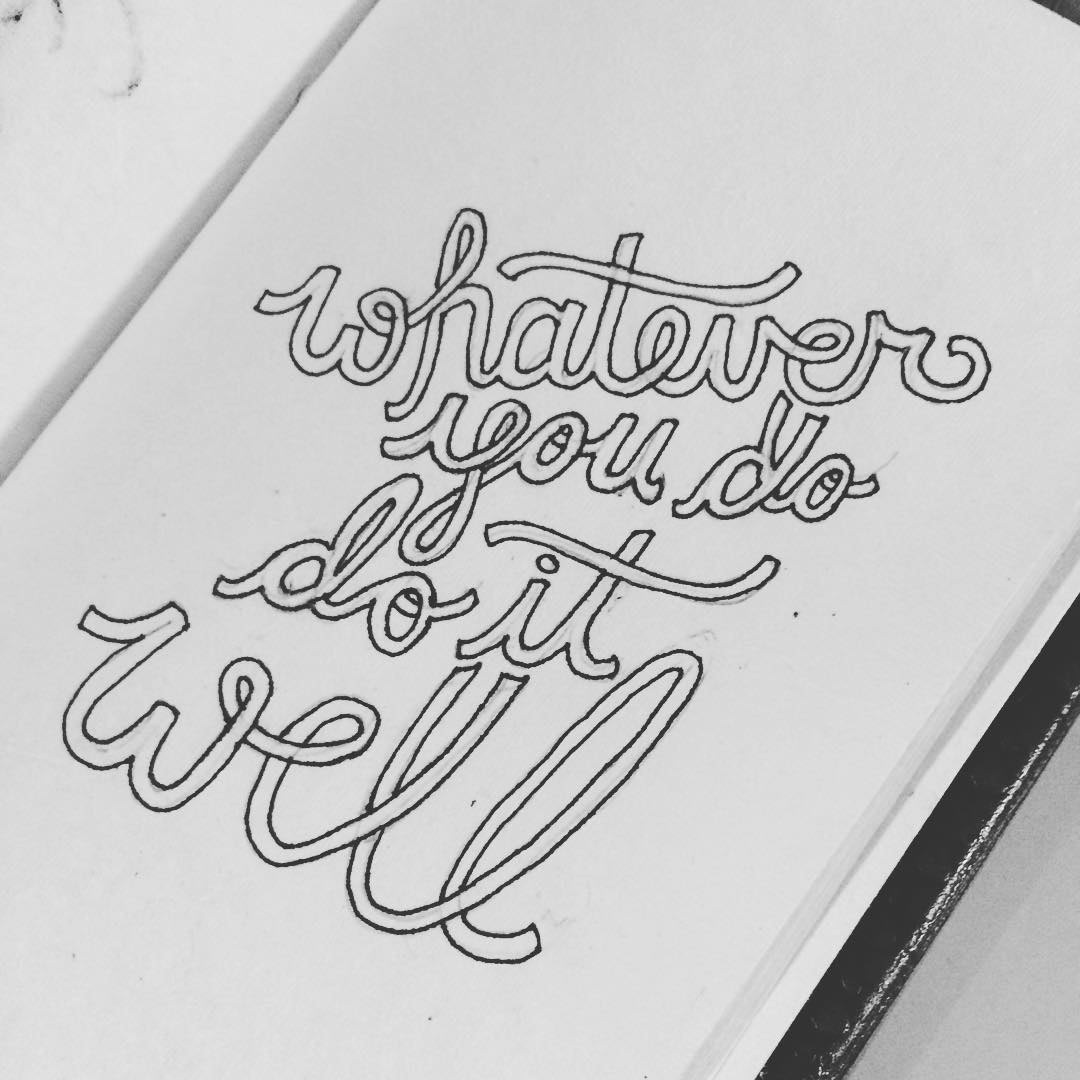 whatever
you do
do it
well